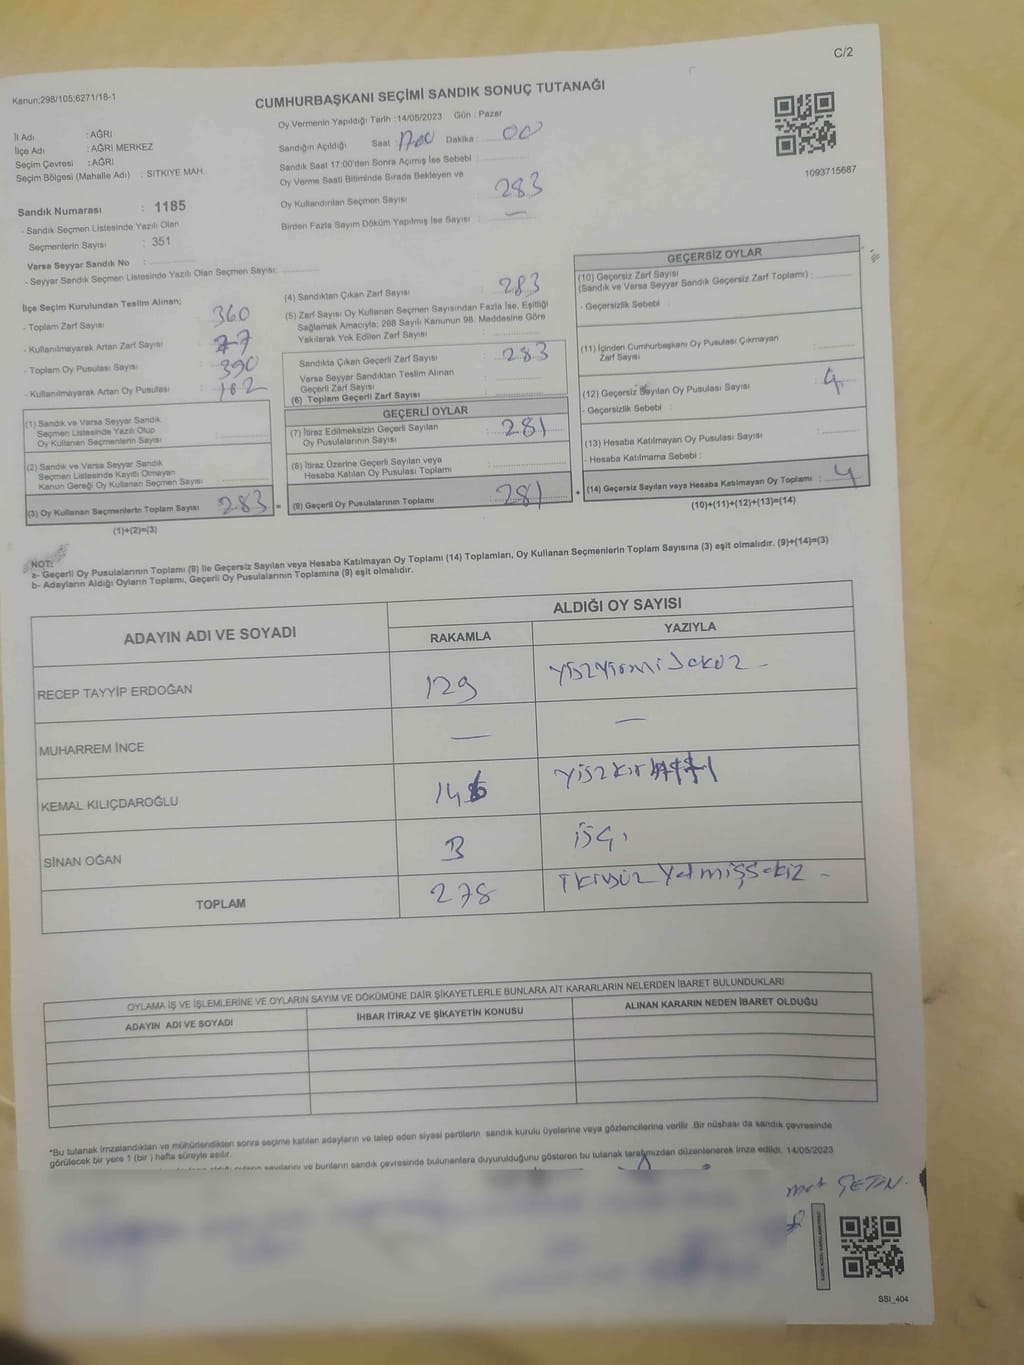 C/2
Kanun;298/105;6271/18-1
CUMHURBAŞKANI SEÇİMİ SANDIK SONUÇ TUTANAĞI
Oy Vermenin Yapıldığı Tarih :14/05/2023 Gün : Pazar
İl Adı : AĞRI
İlçe Adı : AĞRI MERKEZ
Seçim Çevresi : AĞRI
Seçim Bölgesi (Mahalle Adı) : SITKIYE MAH.
Sandığın Açıldığı Saat : 17:00 Dakika : 00
Sandık Saat 17:00'den Sonra Açımış İse Sebebi :
Oy Verme Saati Bitiminde Sırada Bekleyen ve
Oy Kullandırılan Seçmen Sayısı : 283
Birden Fazla Sayım Döküm Yapılmış İse Sayısı : —
1093715687
Sandık Numarası : 1185
- Sandık Seçmen Listesinde Yazılı Olan
Seçmenlerin Sayısı : 351
Varsa Seyyar Sandık No :
- Seyyar Sandık Seçmen Listesinde Yazılı Olan Seçmen Sayısı:
İlçe Seçim Kurulundan Teslim Alınan;
- Toplam Zarf Sayısı : 360
- Kullanılmayarak Artan Zarf Sayısı : 77
- Toplam Oy Pusulası Sayısı : 390
- Kullanılmayarak Artan Oy Pusulası : 102
(1) Sandık ve Varsa Seyyar Sandık
Seçmen Listesinde Yazılı Olup
Oy Kullanan Seçmenlerin Sayısı :
(2) Sandık ve Varsa Seyyar Sandık
Seçmen Listesinde Kayıtlı Olmayan
Kanun Gereği Oy Kullanan Seçmen Sayısı :
(3) Oy Kullanan Seçmenlerin Toplam Sayısı : 283
(1)+(2)=(3)
(4) Sandıktan Çıkan Zarf Sayısı : 283
(5) Zarf Sayısı Oy Kullanan Seçmen Sayısından Fazla İse, Eşitliği
Sağlamak Amacıyla; 298 Sayılı Kanunun 98. Maddesine Göre
Yakılarak Yok Edilen Zarf Sayısı :
Sandıkta Çıkan Geçerli Zarf Sayısı : 283
Varsa Seyyar Sandıktan Teslim Alınan
Geçerli Zarf Sayısı :
(6) Toplam Geçerli Zarf Sayısı :
GEÇERLİ OYLAR
(7) İtiraz Edilmeksizin Geçerli Sayılan
Oy Pusulalarının Sayısı : 281
(8) İtiraz Üzerine Geçerli Sayılan veya
Hesaba Katılan Oy Pusulası Toplamı :
= (9) Geçerli Oy Pusulalarının Toplamı : 281 +
GEÇERSİZ OYLAR
(10) Geçersiz Zarf Sayısı
(Sandık ve Varsa Seyyar Sandık Geçersiz Zarf Toplamı) :
- Geçersizlik Sebebi :
(11) İçinden Cumhurbaşkanı Oy Pusulası Çıkmayan
Zarf Sayısı :
(12) Geçersiz Sayılan Oy Pusulası Sayısı : 4
- Geçersizlik Sebebi :
(13) Hesaba Katılmayan Oy Pusulası Sayısı :
- Hesaba Katılmama Sebebi :
(14) Geçersiz Sayılan veya Hesaba Katılmayan Oy Toplamı : 4
(10)+(11)+(12)+(13)=(14)
NOT:
a- Geçerli Oy Pusulalarının Toplamı (9) ile Geçersiz Sayılan veya Hesaba Katılmayan Oy Toplamı (14) Toplamları, Oy Kullanan Seçmenlerin Toplam Sayısına (3) eşit olmalıdır. (9)+(14)=(3)
b- Adayların Aldığı Oyların Toplamı, Geçerli Oy Pusulalarının Toplamına (9) eşit olmalıdır.
ADAYIN ADI VE SOYADI ALDIĞI OY SAYISI
RAKAMLA YAZIYLA
RECEP TAYYİP ERDOĞAN 129
MUHARREM İNCE — —
KEMAL KILIÇDAROĞLU 146
SİNAN OĞAN 3 üç
TOPLAM 278 ikiyüz yetmişsekiz
OYLAMA İŞ VE İŞLEMLERİNE VE OYLARIN SAYIM VE DÖKÜMÜNE DAİR ŞİKAYETLERLE BUNLARA AİT KARARLARIN NELERDEN İBARET BULUNDUKLARI
ADAYIN ADI VE SOYADI İHBAR İTİRAZ VE ŞİKAYETİN KONUSU ALINAN KARARIN NEDEN İBARET OLDUĞU
*Bu tutanak imzalandıktan ve mühürlendikten sonra seçime katılan adayların ve talep eden siyasi partilerin sandık kurulu üyelerine veya gözlemcilerine verilir .Bir nüshası da sandık çevresinde
görülecek bir yere 1 (bir ) hafta süreyle asılır.
oyların sayılarını ve bunların sandık çevresinde bulunanlara duyurulduğunu gösteren bu tutanak tarafımızdan düzenlenerek imza edildi. 14/05/2023
ÇETİN
SSI_404